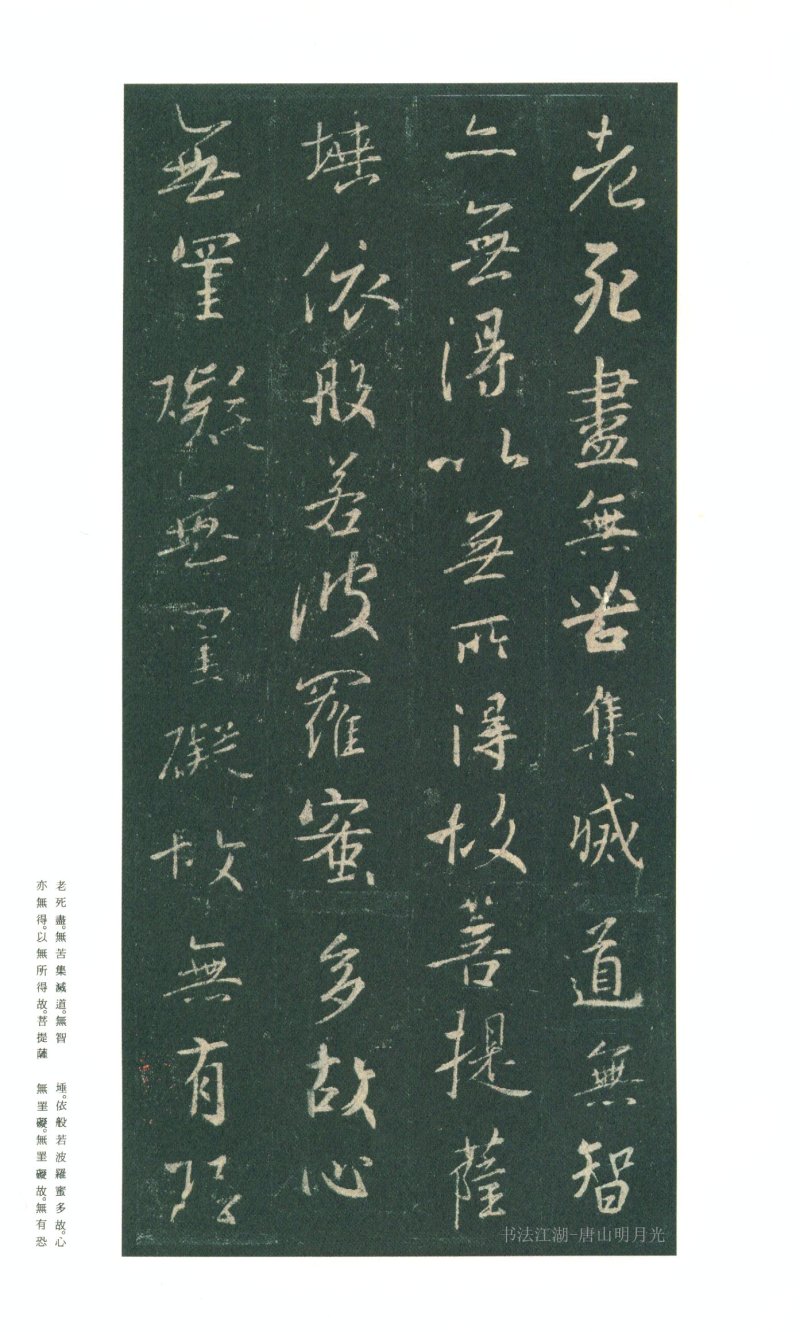 老死盡無苦集滅道無智
亦無得以無所得故菩提薩
埵依般若波羅蜜多故心
無罣礙無罣礙故無有恐
老死盡。無苦集滅道。無智
亦無得。以無所得故。菩提薩
埵。依般若波羅蜜多故。心
無罣礙。無罣礙故。無有恐
书法江湖-唐山明月光